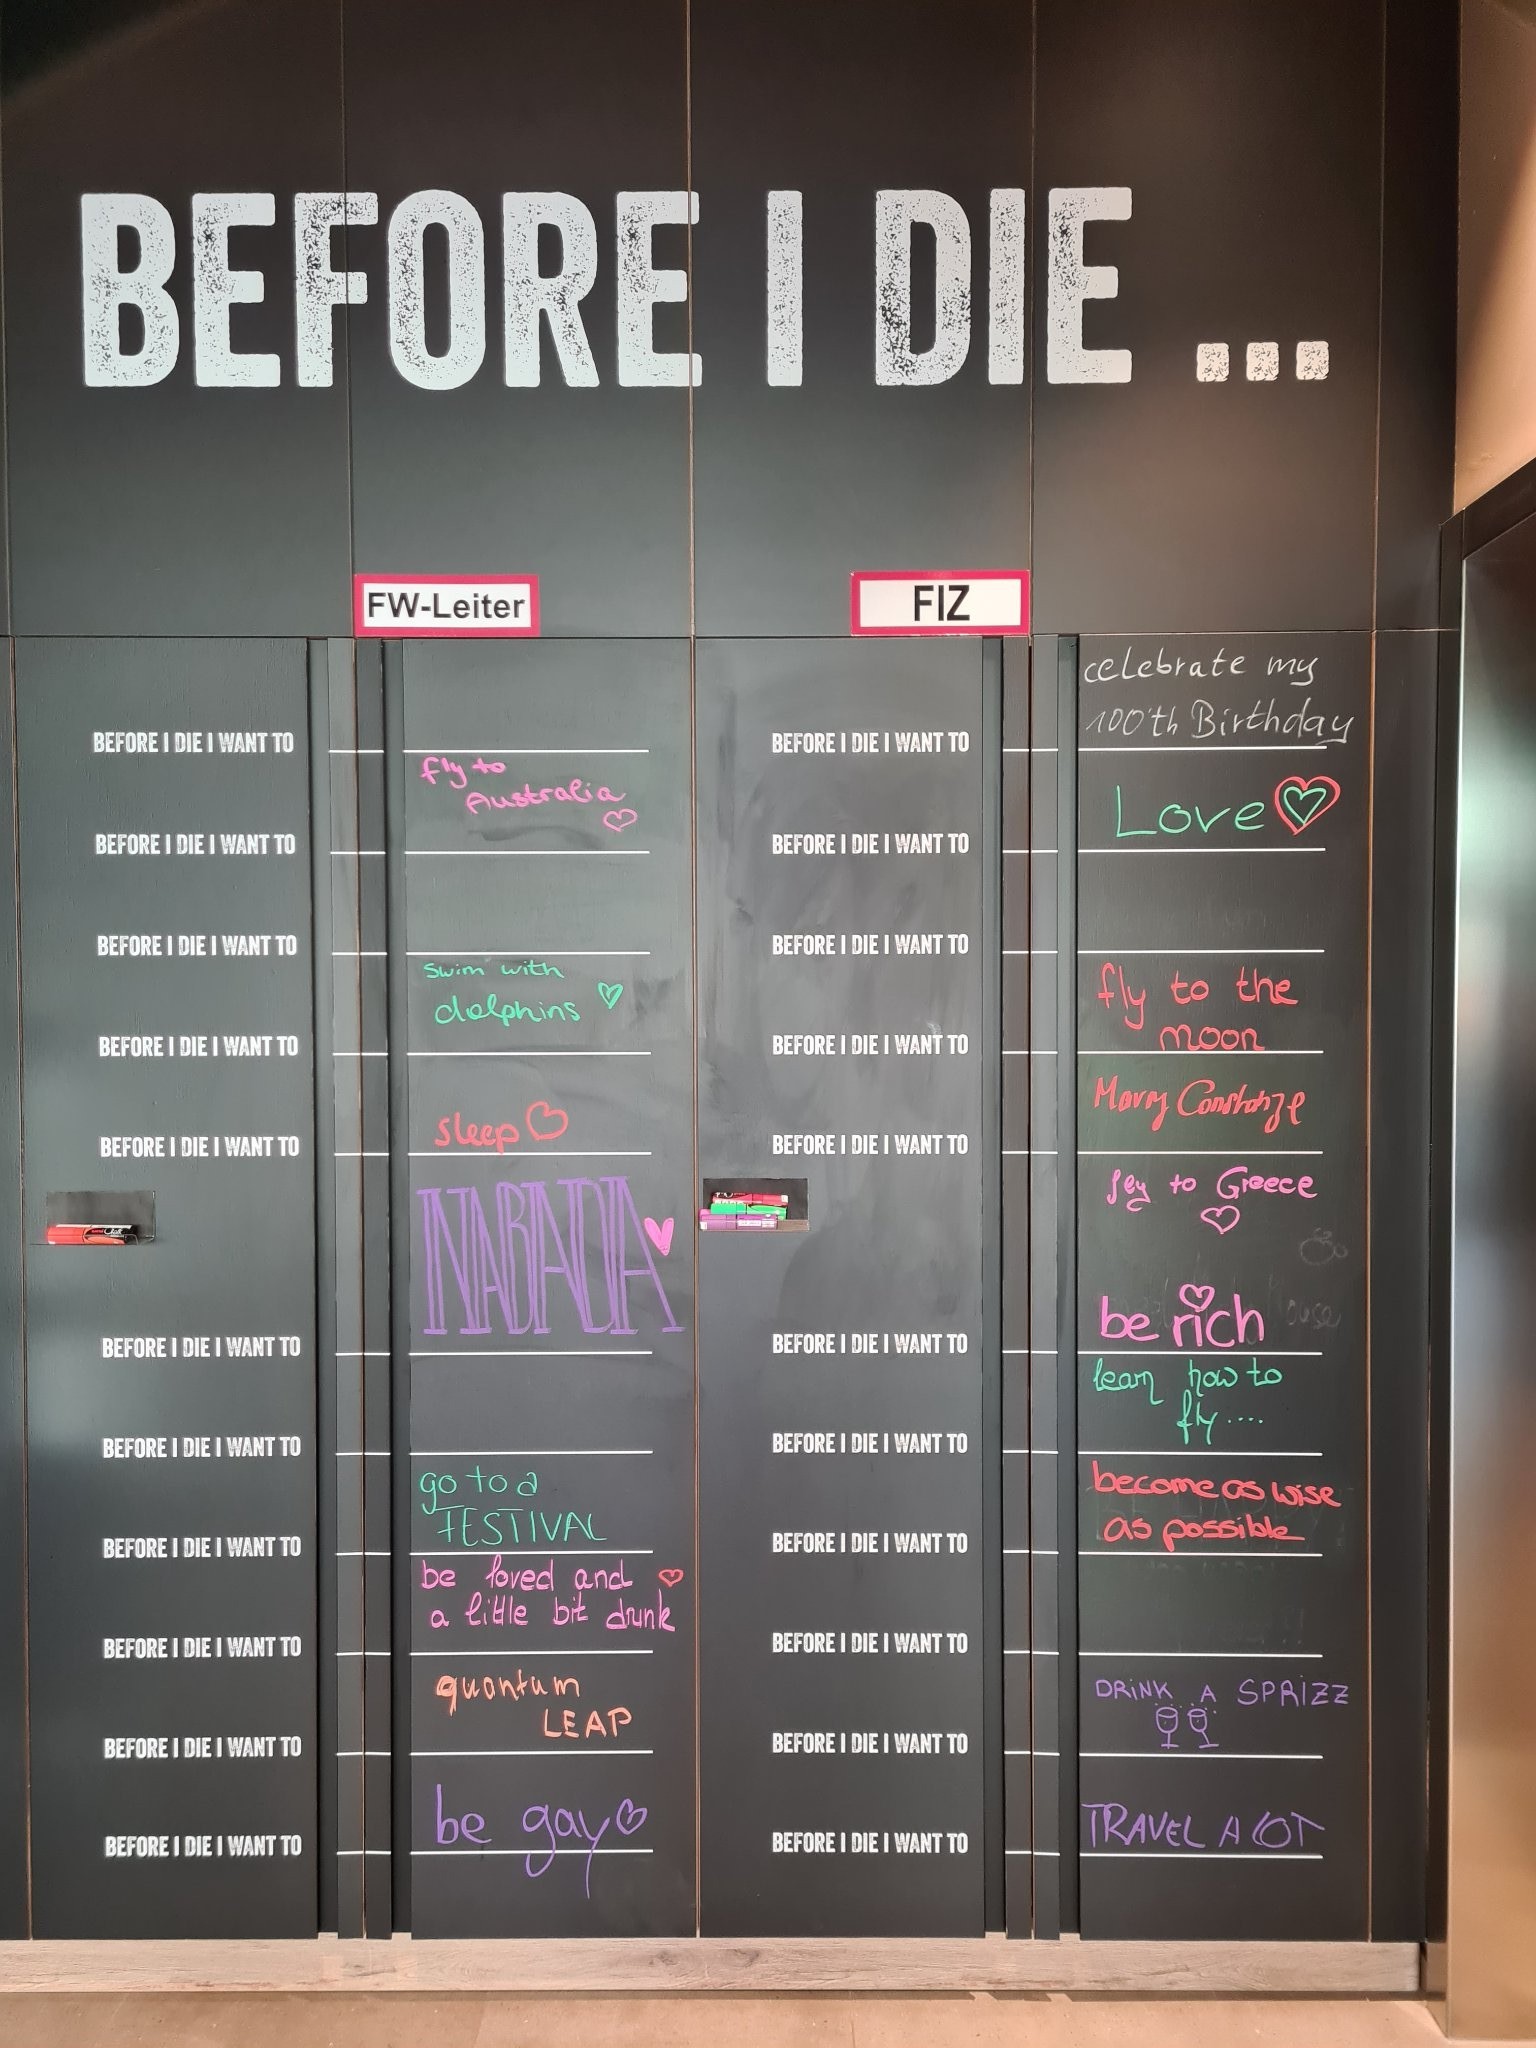 BEFORE I DIE ...
FW-Leiter
FIZ
BEFORE I DIE I WANT TO
BEFORE I DIE I WANT TO
fly to
Australia
BEFORE I DIE I WANT TO
BEFORE I DIE I WANT TO
swim with
dolphins
BEFORE I DIE I WANT TO
sleep
BEFORE I DIE I WANT TO
NABADA
BEFORE I DIE I WANT TO
BEFORE I DIE I WANT TO
go to a
FESTIVAL
BEFORE I DIE I WANT TO
be loved and
a little bit drunk
BEFORE I DIE I WANT TO
quantum
LEAP
BEFORE I DIE I WANT TO
be gay
BEFORE I DIE I WANT TO
celebrate my
100'th Birthday
BEFORE I DIE I WANT TO
Love
BEFORE I DIE I WANT TO
BEFORE I DIE I WANT TO
fly to the
moon
BEFORE I DIE I WANT TO
Marry Constanze
BEFORE I DIE I WANT TO
fly to Greece
be rich
BEFORE I DIE I WANT TO
learn how to
fly....
BEFORE I DIE I WANT TO
become as wise
as possible
BEFORE I DIE I WANT TO
BEFORE I DIE I WANT TO
DRINK A SPRIZZ
BEFORE I DIE I WANT TO
TRAVEL A LOT